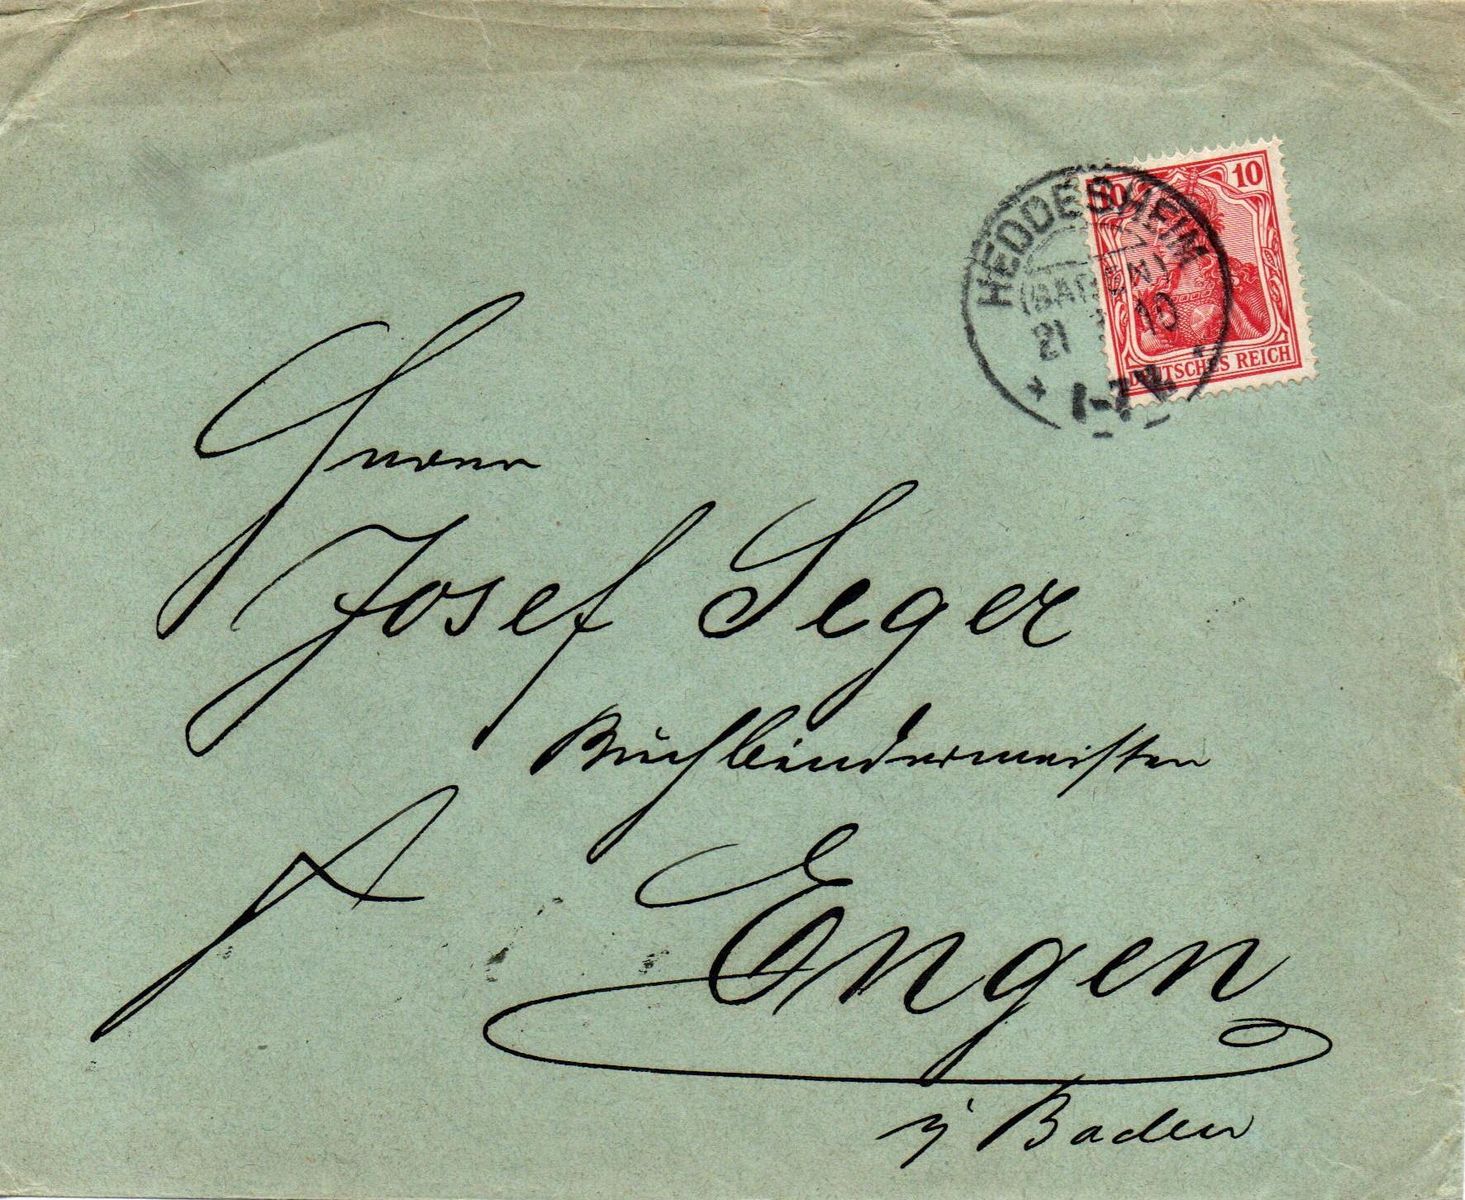 10 10
DEUTSCHES REICH
HEDDESHEIM
(BADEN)
21 10
Herrn
Josef Seger
Buchbindermeister
Engen
i/ Baden